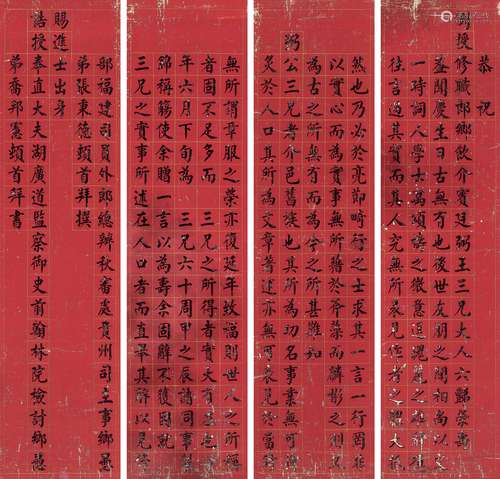 恭祝
授修職郎鄉飲介賓廷弼王三兄大人六榮壽
蓋聞慶生日古無有也後世友朋之間相尚以文
一時詞人學士萬頌禱之微意逞麗之雄
往言過其實而其人究無所表見作者之大
然也乃必於亮節畸行之士求其一言一行固非
以實心而為實事無所藉於斧藻而影之
為古之所無有而為今之所甚難如
弼公三兄者介邑舊族也其所為功名事業無可
炙於人口其所為文章著述亦無可表見於當
無所謂章服之榮亦復延年致福則世人之所
者固不足多而三兄之所得者實大
年六月下旬為三兄六十周甲之辰諸同事
錦稱觴使余贈一言以為壽余固辭不獲因就
三兄之實事所述在人口者而直舉其辭以見
部福建司員外郎總辦秋審處貴州司主事鄉愚
弟張東德頓首拜撰
賜進士出身
誥授奉直大夫湖廣道監察御史前翰林院檢討鄉愚
弟喬邦憲頓首拜書